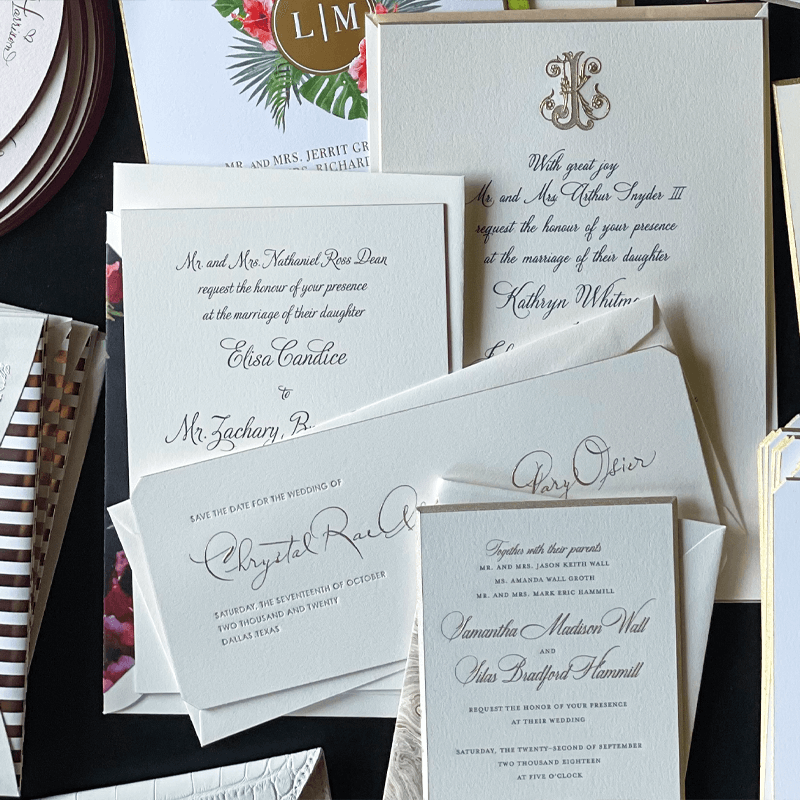 Harrison
L|M
MR. AND MRS. JERRIT
RICHARD
JK
With great joy
Mr. and Mrs. Arthur Snyder III
request the honour of your presence
at the marriage of their daughter
Kathryn
Mr. and Mrs. Nathaniel Ross Dean
request the honour of your presence
at the marriage of their daughter
Elisa Candice
to
Mr. Zachary
SAVE THE DATE FOR THE WEDDING OF
Chrystal Rae
Osier
SATURDAY, THE SEVENTEENTH OF OCTOBER
TWO THOUSAND AND TWENTY
DALLAS, TEXAS
Together with their parents
MR. AND MRS. JASON KEITH WALL
MS. AMANDA WALL GROTH
MR. AND MRS. MARK ERIC HAMMILL
Samantha Madison Wall
AND
Silas Bradford Hammill
REQUEST THE HONOR OF YOUR PRESENCE
AT THEIR WEDDING
SATURDAY, THE TWENTY-SECOND OF SEPTEMBER
TWO THOUSAND EIGHTEEN
AT FIVE O'CLOCK